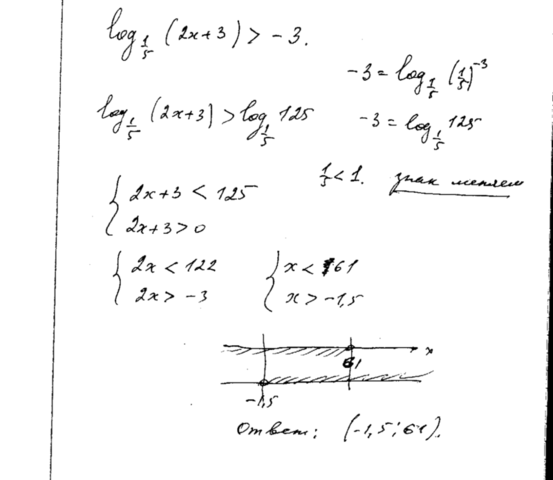 log_{1/5} (2x+3) > -3.
-3 = log_{1/5} (1/5)^{-3}
log_{1/5} (2x+3) > log_{1/5} 125
-3 = log_{1/5} 125
1/5 < 1. знак меняем
{ 2x+3 < 125
2x+3 > 0
{ 2x < 122
2x > -3
{ x < 61
x > -1,5
x
61
-1,5
Ответ: (-1,5; 61).